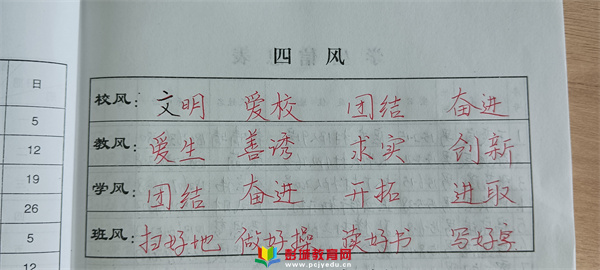 四风
日
校风：文明 爱校 团结 奋进
5
教风：爱生 善诱 求实 创新
12
19
学风：团结 奋进 开拓 进取
26
班风：扫好地 做好操 读好书 写好字
5
12
彭硕教育网
www.pcjyedu.cn